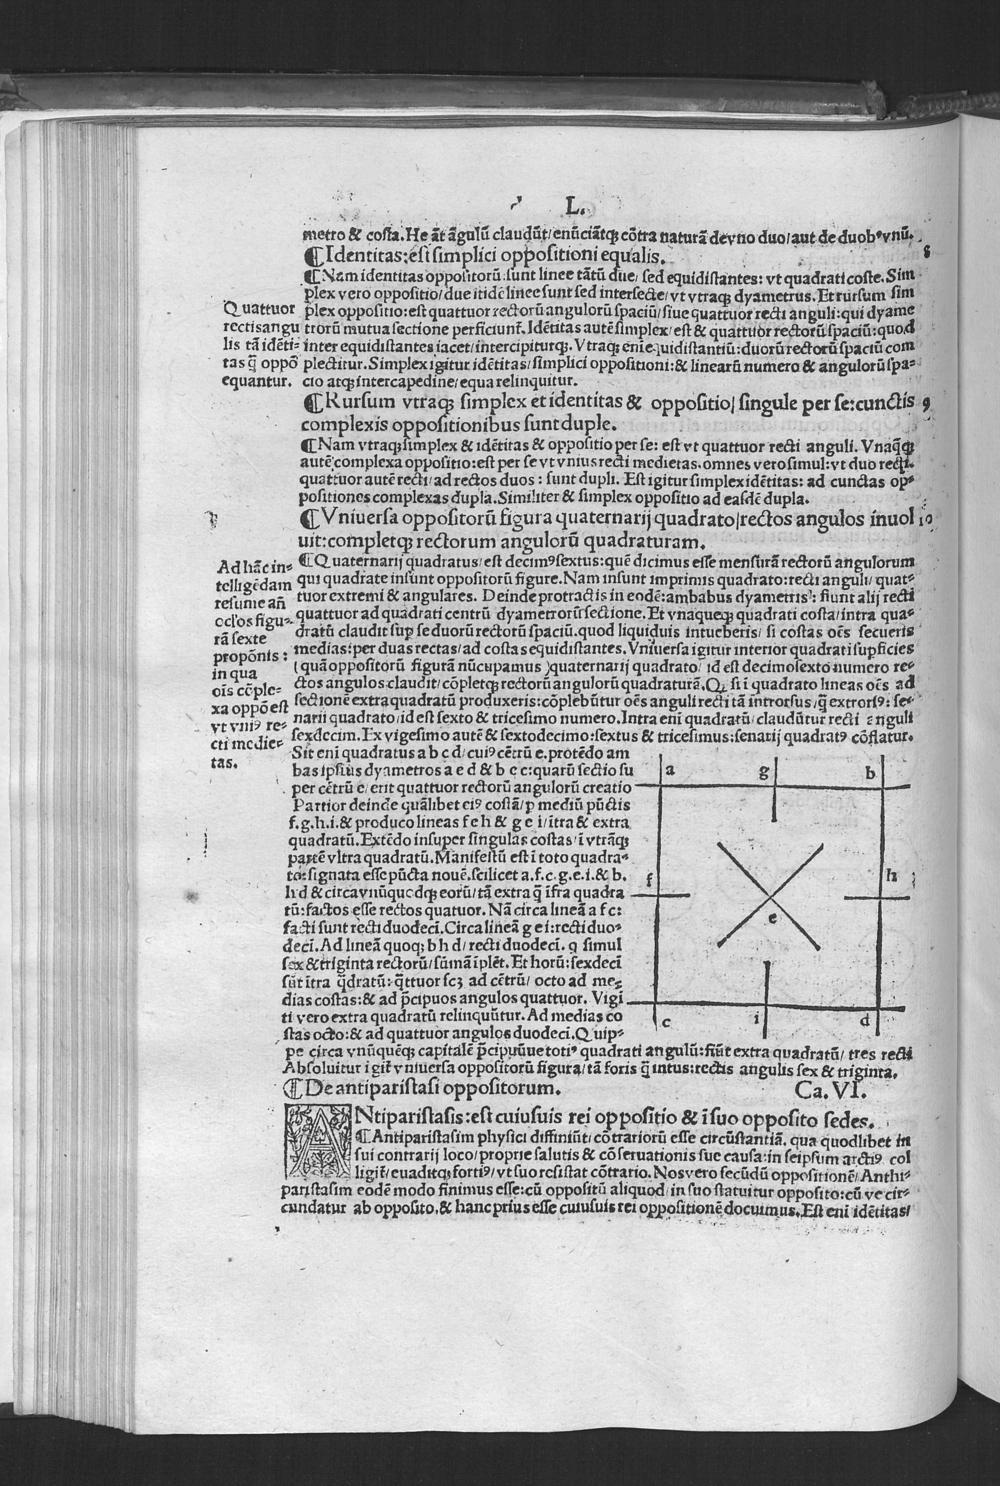 L.
metro & costa. He āt āgulū claudūt/ enūciātq; cōtra naturā de vno duo/ aut de duobꝰ vnū.
¶Identitas: est simplici oppositioni equalis. 8
¶Nam identitas oppositorū: sunt linee tātū due/ sed equidistantes: vt quadrati coste. Sim
plex vero oppositio/ due itidē linee sunt sed intersecte/ vt vtraq; dyametrus. Et rursum sim
plex oppositio: est quattuor rectorū angulorū spaciū/ siue quattuor recti anguli: qui dyame
trorū mutua sectione perficiunt. Idētitas autē simplex/ est & quattuor rectorū spaciū: quod
inter equidistantes iacet/ intercipiturq;. Vtraq; enī equidistantiū: duorū rectorū spaciū com
plectitur. Simplex igitur idētitas/ simplici oppositioni: & linearū numero & angulorū spa=
cio atq; intercapedine/ equa relinquitur.
Quattuor
rectis angu
lis tā idēti=
tas q̄ oppō
equantur.
¶Rursum vtraq; simplex et identitas & oppositio/ singule per se: cunctis 9
complexis oppositionibus sunt duple.
¶Nam vtraq; simplex & idētitas & oppositio per se: est vt quattuor recti anguli. Vnaq̄q;
autē complexa oppositio: est per se vt vnius recti medietas. omnes vero simul: vt duo recti.
quattuor autē recti/ ad rectos duos: sunt dupli. Est igitur simplex idētitas: ad cunctas op=
positiones complexas dupla. Similiter & simplex oppositio ad easdē dupla.
¶Vniuersa oppositorū figura quaternarij quadrato/ rectos angulos inuol 10
uit: completq; rectorum angulorū quadraturam.
¶Quaternarij quadratus/ est decimꝰsextus: quē dicimus esse mensurā rectorū angulorum
qui quadrate insunt oppositorū figure. Nam insunt imprimis quadrato: recti anguli/ quat=
tuor extremi & angulares. Deinde protractis in eodē: ambabus dyametris: fiunt alij recti
quattuor ad quadrati centrū dyametrorū sectione. Et vnaqueq; quadrati costa/ intra qua=
dratū claudit sup se duorū rectorū spaciū. quod liquidius intueberis/ si costas oēs secueris
medias: per duas rectas/ ad costas equidistantes. Vniuersa igitur interior quadrati supficies
(quā oppositorū figurā nūcupamus) quaternarij quadrato/ id est decimosexto numero re=
ctos angulos claudit/ cōpletq; rectorū angulorū quadraturā. Q̄ si ī quadrato lineas oēs ad
sectionē extra quadratū produxeris: cōplebūtur oēs anguli recti tā introrsus/ q̄ extrorsꝰ: se=
narij quadrato/ id est sexto & tricesimo numero. Intra enī quadratū/ claudūtur recti anguli
sexdecim. Ex vigesimo autē & sextodecimo: sextus & tricesimus: senarij quadratꝰ cōflatur.
Ad hāc in=
telligēdam
resume añ
octos figu=
rā sexte
propōnis:
in qua
oīs cōple=
xa oppō est
vt vniꝰ re=
cti medie=
tas.
Sit enī quadratus a b c d/ cuiꝰ cētrū e. protēdo am
bas ipsius dyametros a e d & b e c: quarū sectio su
per cētrū e/ erit quattuor rectorū angulorū creatio
Partior deinde quālibet eiꝰ costā/ p mediū pūctis
f. g. h. i. & produco lineas f e h & g e i/ ītra & extra
quadratū. Extēdo insuper singulas costas/ ī vtrāq;
partē vltra quadratū. Manifestū est ī toto quadra=
to: signata esse pūcta nouē. scilicet a. f. c. g. e. i. & b.
h d & circa vnūquodq; eorū/ tā extra q̄ īfra quadra
tū: factos esse rectos quatuor. Nā circa lineā a f c:
facti sunt recti duodecī. Circa lineā g e i: recti duo=
decī. Ad lineā quoq; b h d/ recti duodecī. q simul
sex & triginta rectorū/ sūmā īplēt. Et horū: sexdecī
sūt ītra q̄dratū: q̄ttuor scꝫ ad cētrū/ octo ad me=
dias costas: & ad p̄cipuos angulos quattuor. Vigī
ti vero extra quadratū relinquūtur. Ad medias co
stas octo: & ad quattuor angulos duodecī. Quip=
pe circa vnūquēq; capitalē p̄cipuūue totiꝰ quadrati angulū: fiūt extra quadratū/ tres recti
Absoluitur igit̄ vniuersa oppositorū figura/ tā foris q̄ intus: rectis angulis sex & triginta.
a g b
f h
e
c i d
¶De antiparistasi oppositorum. Ca. VI.
ANtiparistasis: est cuiusuis rei oppositio & ī suo opposito sedes.
¶Antiparistasim physici diffiniūt/ cōtrariorū esse circūstantiā, qua quodlibet in
sui contrarij loco/ proprie salutis & cōseruationis sue causa: in seipsum arctiꝰ col
ligit̄/ euaditq; fortiꝰ/ vt suo resistat cōtrario. Nos vero secūdū oppositionē/ Anthi=
paristasim eodē modo finimus esse: cū oppositū aliquod/ in suo statuitur opposito: cū ve cir=
cundatur ab opposito. & hanc prius esse cuiusuis rei oppositionē docuimus. Est enī idētitas/